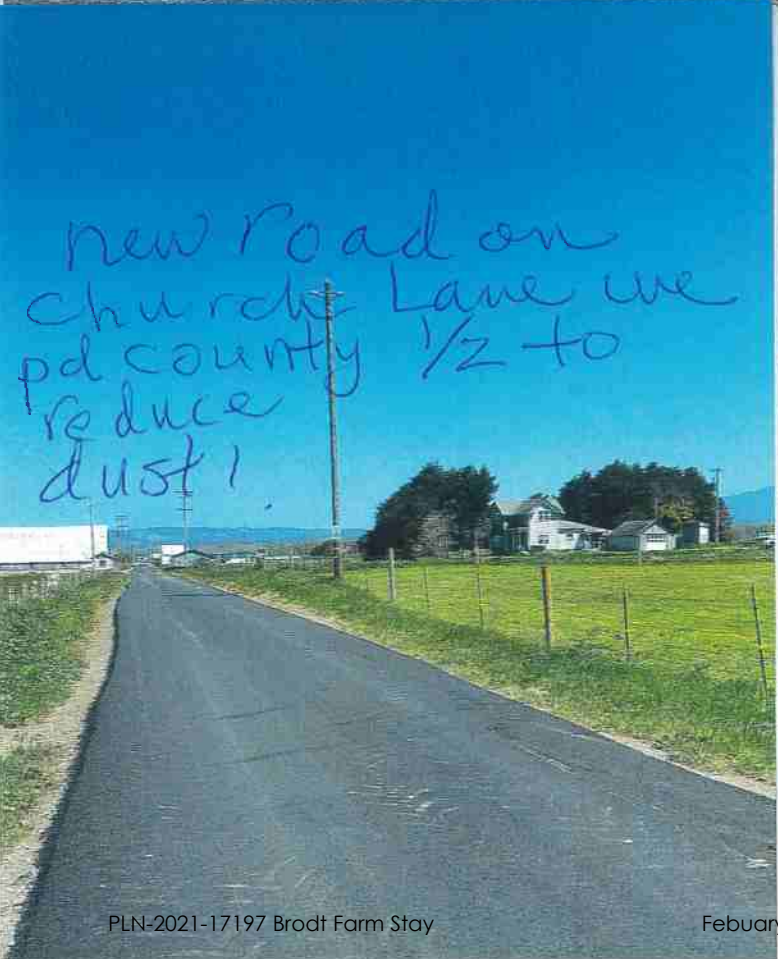 new road on
Church Lane we
pd county 1/2 to
reduce
dust!
PLN-2021-17197 Brodt Farm Stay Febuar